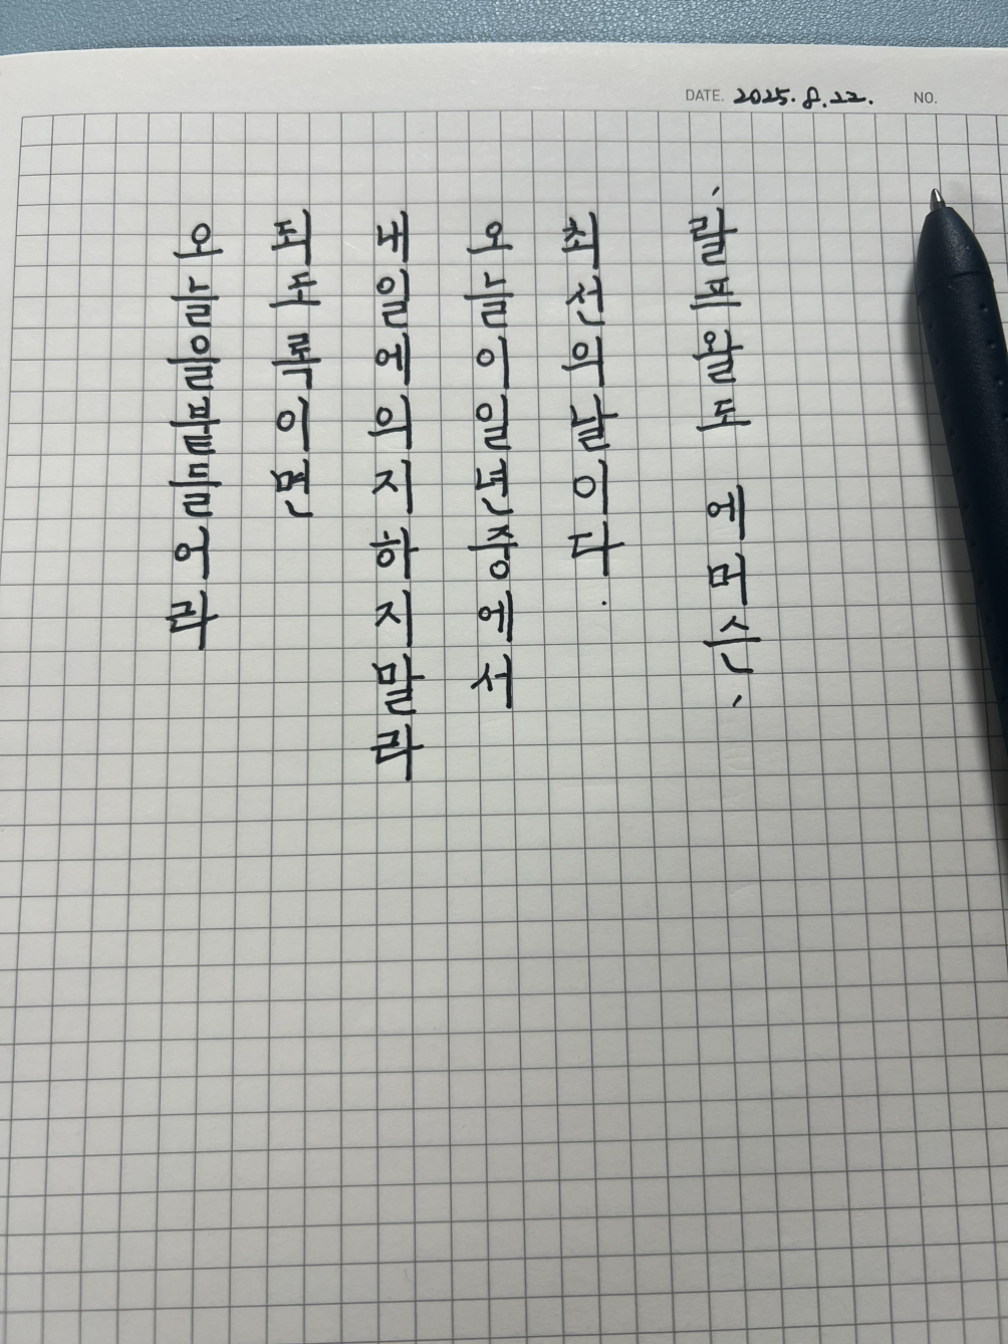 DATE. 2025. 8. 22. NO.
오늘을붙들어라
되도록이면
내일에의지하지말라
오늘이일년중에서
최선의날이다.
'랄프왈도 에머슨'